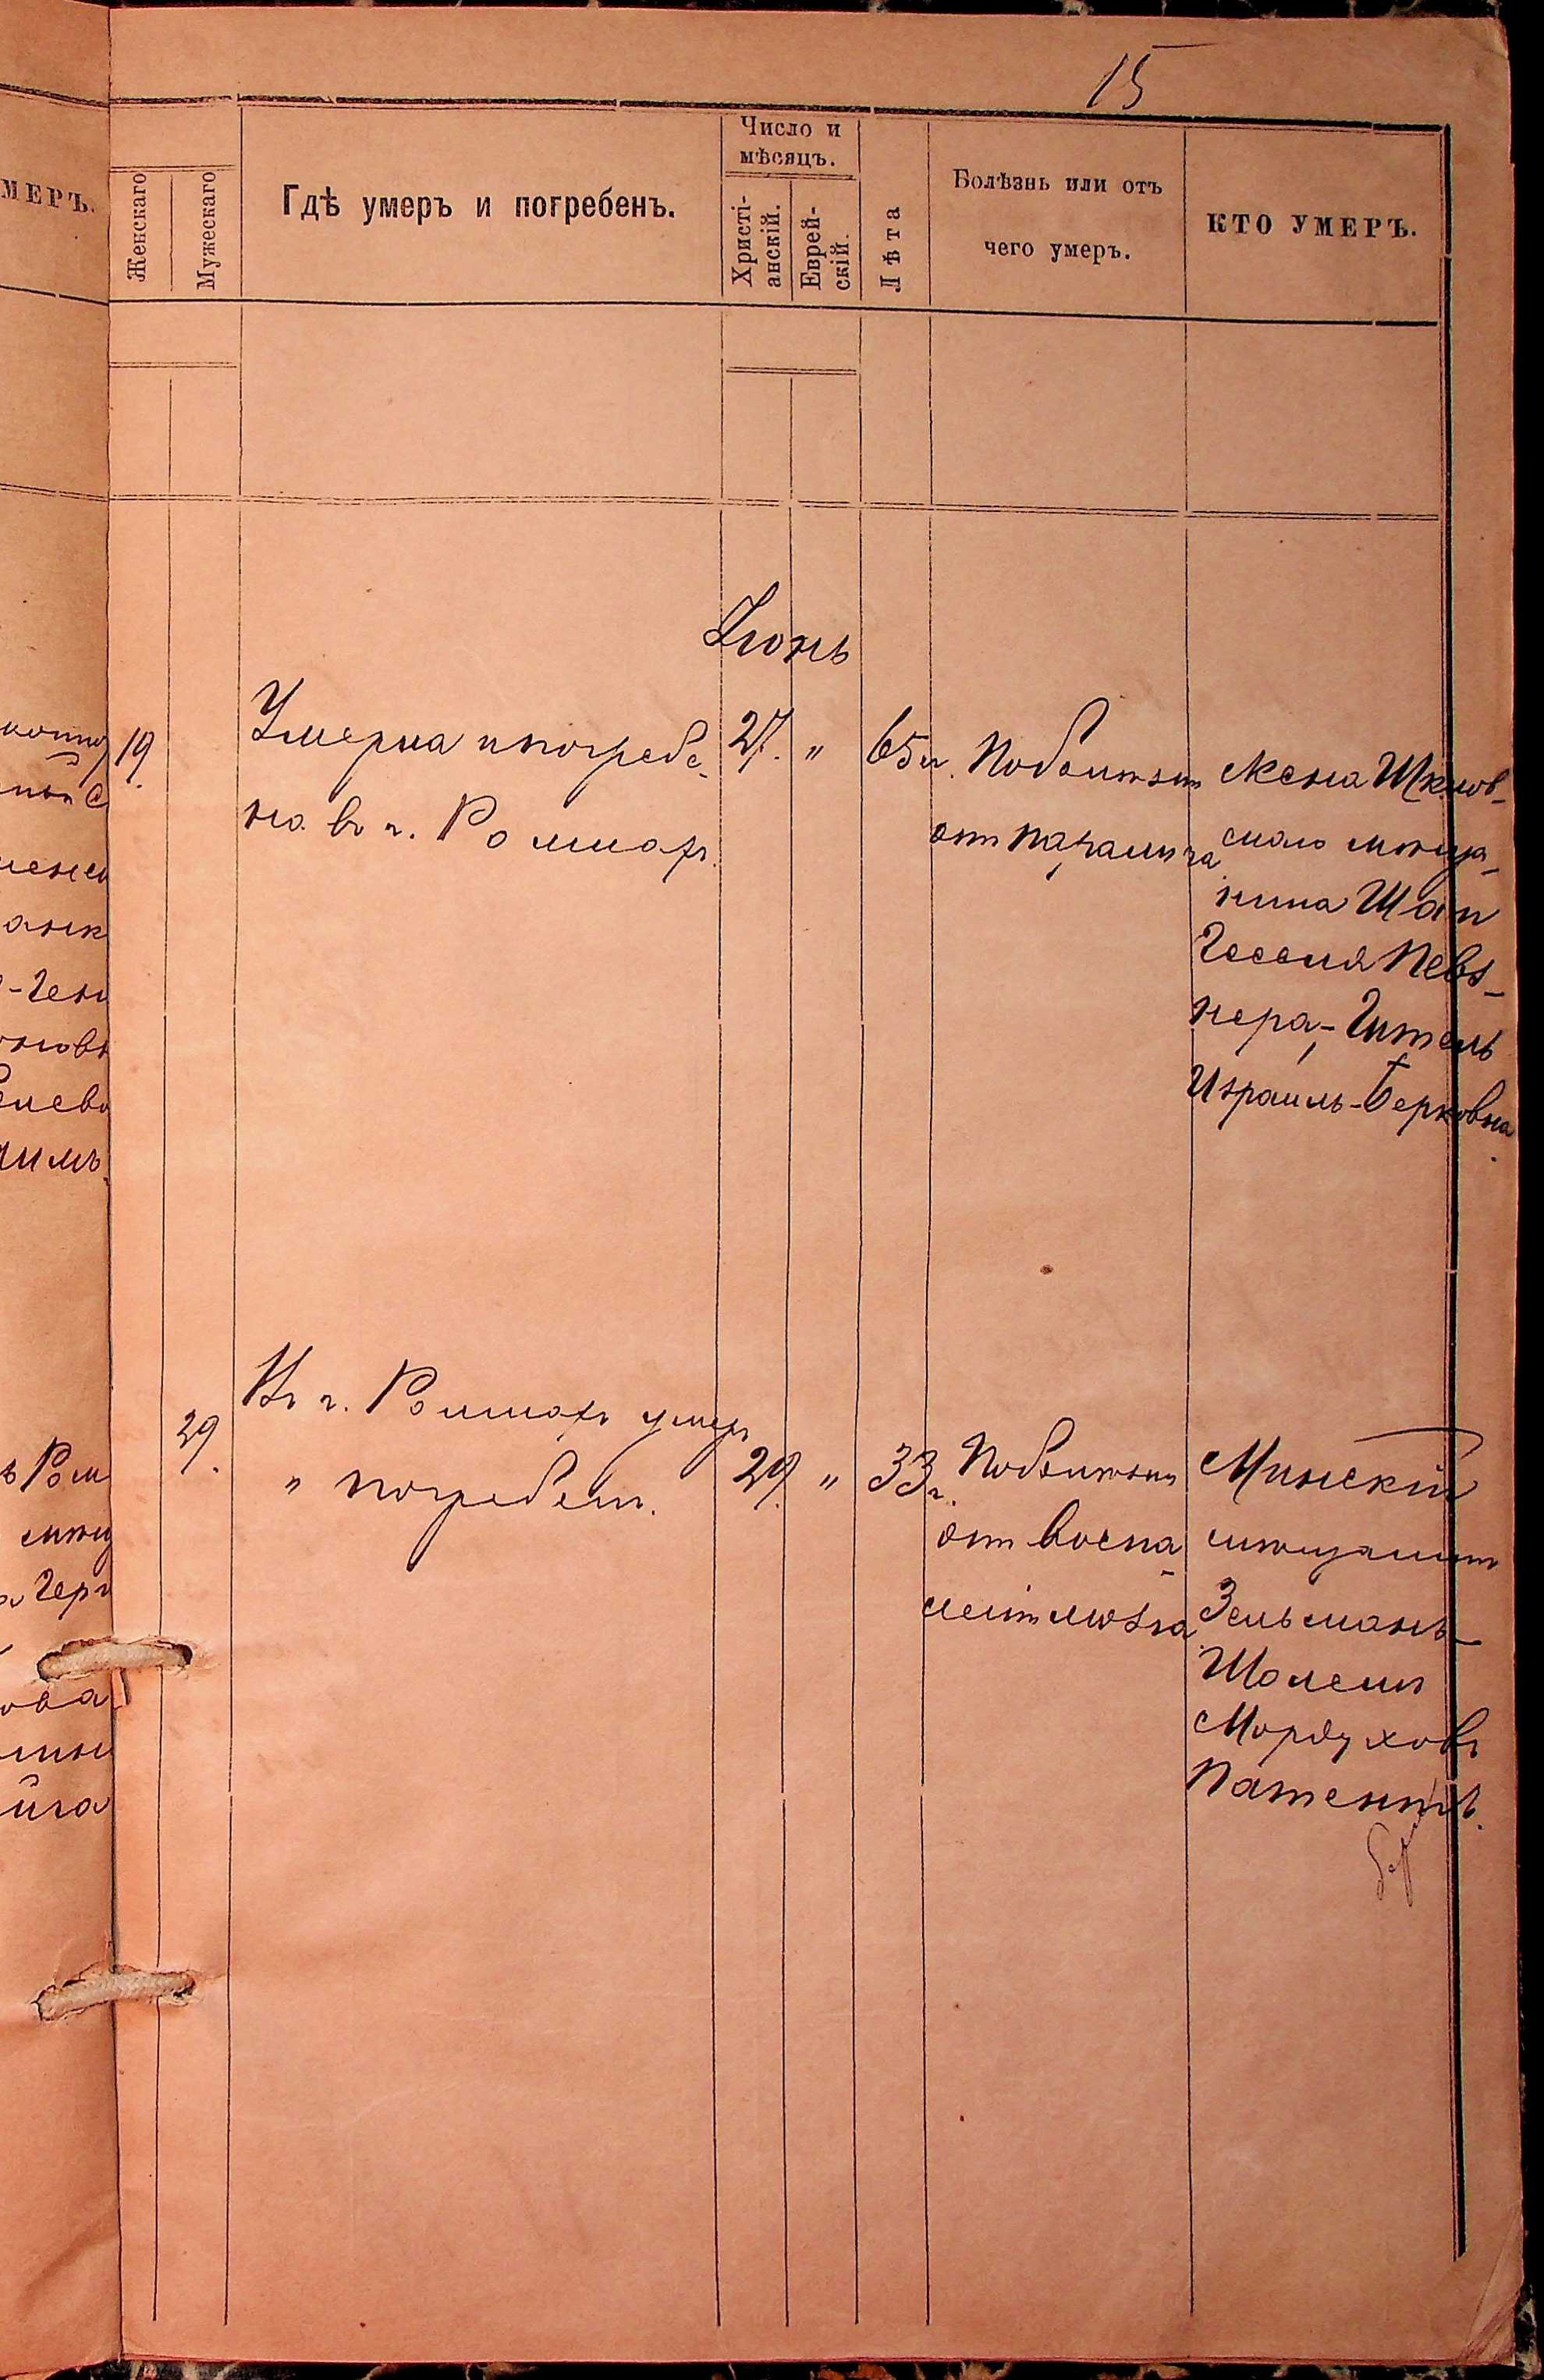 15
МЕРЪ.
Женскаго
Мужескаго
Гдѣ умеръ и погребенъ.
Число и
мѣсяцъ.
Христі-
анскій.
Еврей-
скій.
Лѣта
Болѣзнь или отъ
чего умеръ.
КТО УМЕРЪ.
Іюнь
19.
Умерла и погребе-
на въ г. Ромнахъ.
27. " 65 л.
По болѣзни
отъ паралича
Жена Шклов-
скаго мѣща-
нина Шаи
Гесселя Певз-
нера, - Гитель
Израиль-Берковна.
29.
Въ г. Ромнахъ умеръ
" погребенъ.
29. " 33 г.
По болѣзни
отъ воспа-
ленія мозга
Минскій
мѣщанинъ
Зельманъ-
Шолемъ
Мордуховъ
Патентъ.
ъ Ром
мѣщ
а Гер
ова